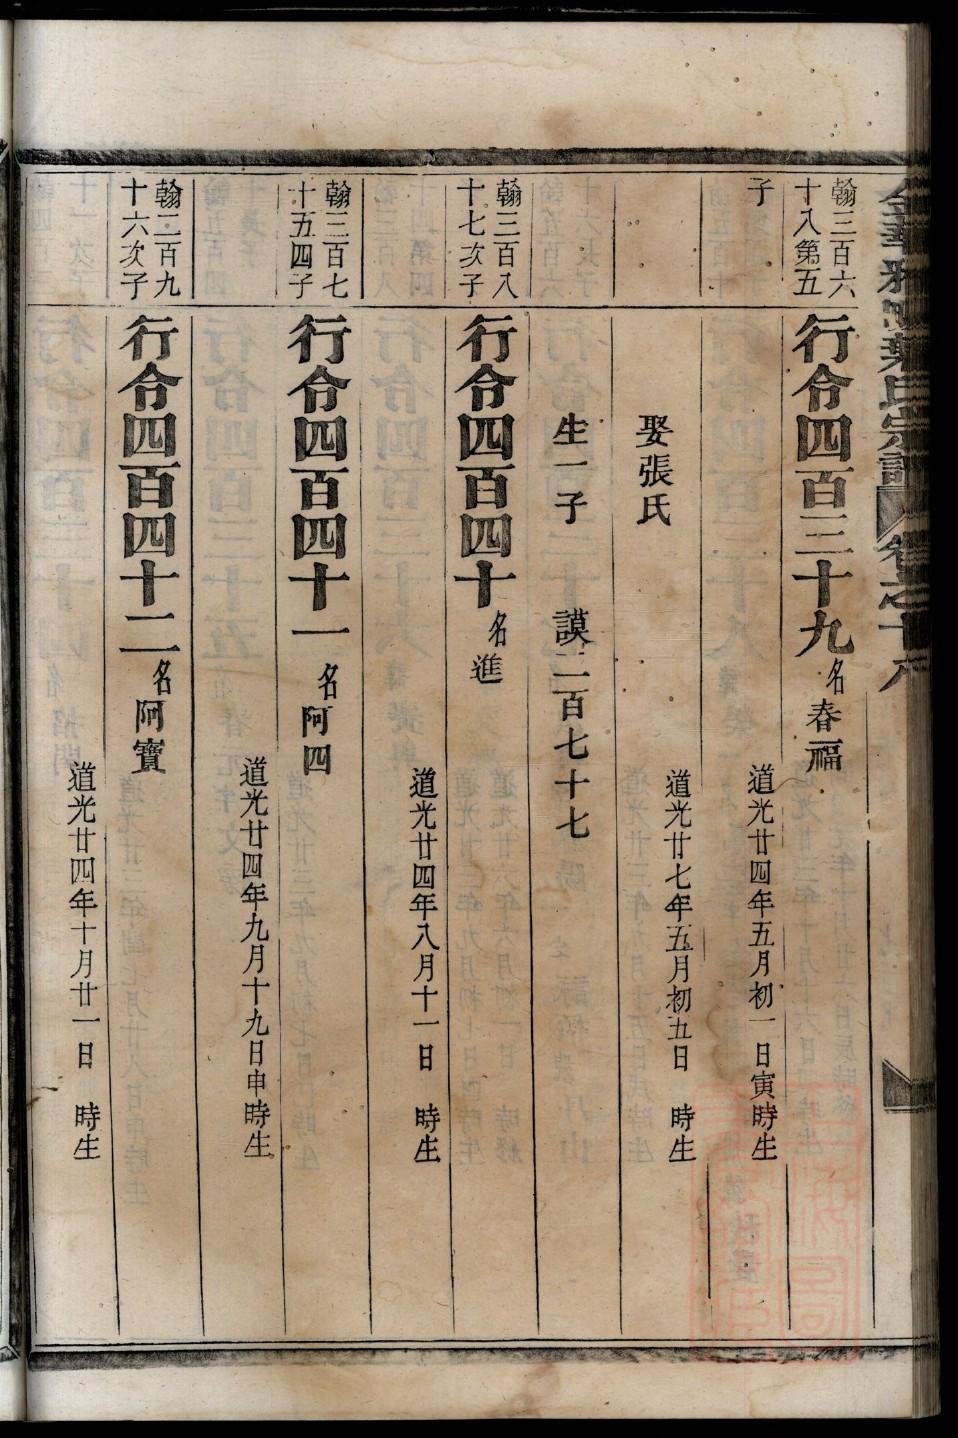 翰三百六
十八第五
子
行令四百三十九名春福
道光廿四年五月初一日寅時生
娶張氏
道光廿七年五月初五日 時生
生一子 謨二百七十七
翰三百八
十七次子
行令四百四十名進
道光廿四年八月十一日 時生
翰三百七
十五四子
行令四百四十一名阿四
道光廿四年九月十九日申時生
翰二百九
十六次子
行令四百四十二名阿寶
道光廿四年十月廿一日 時生